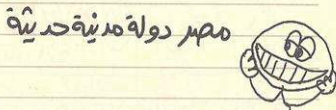 مصر دولة مدنية حديثة